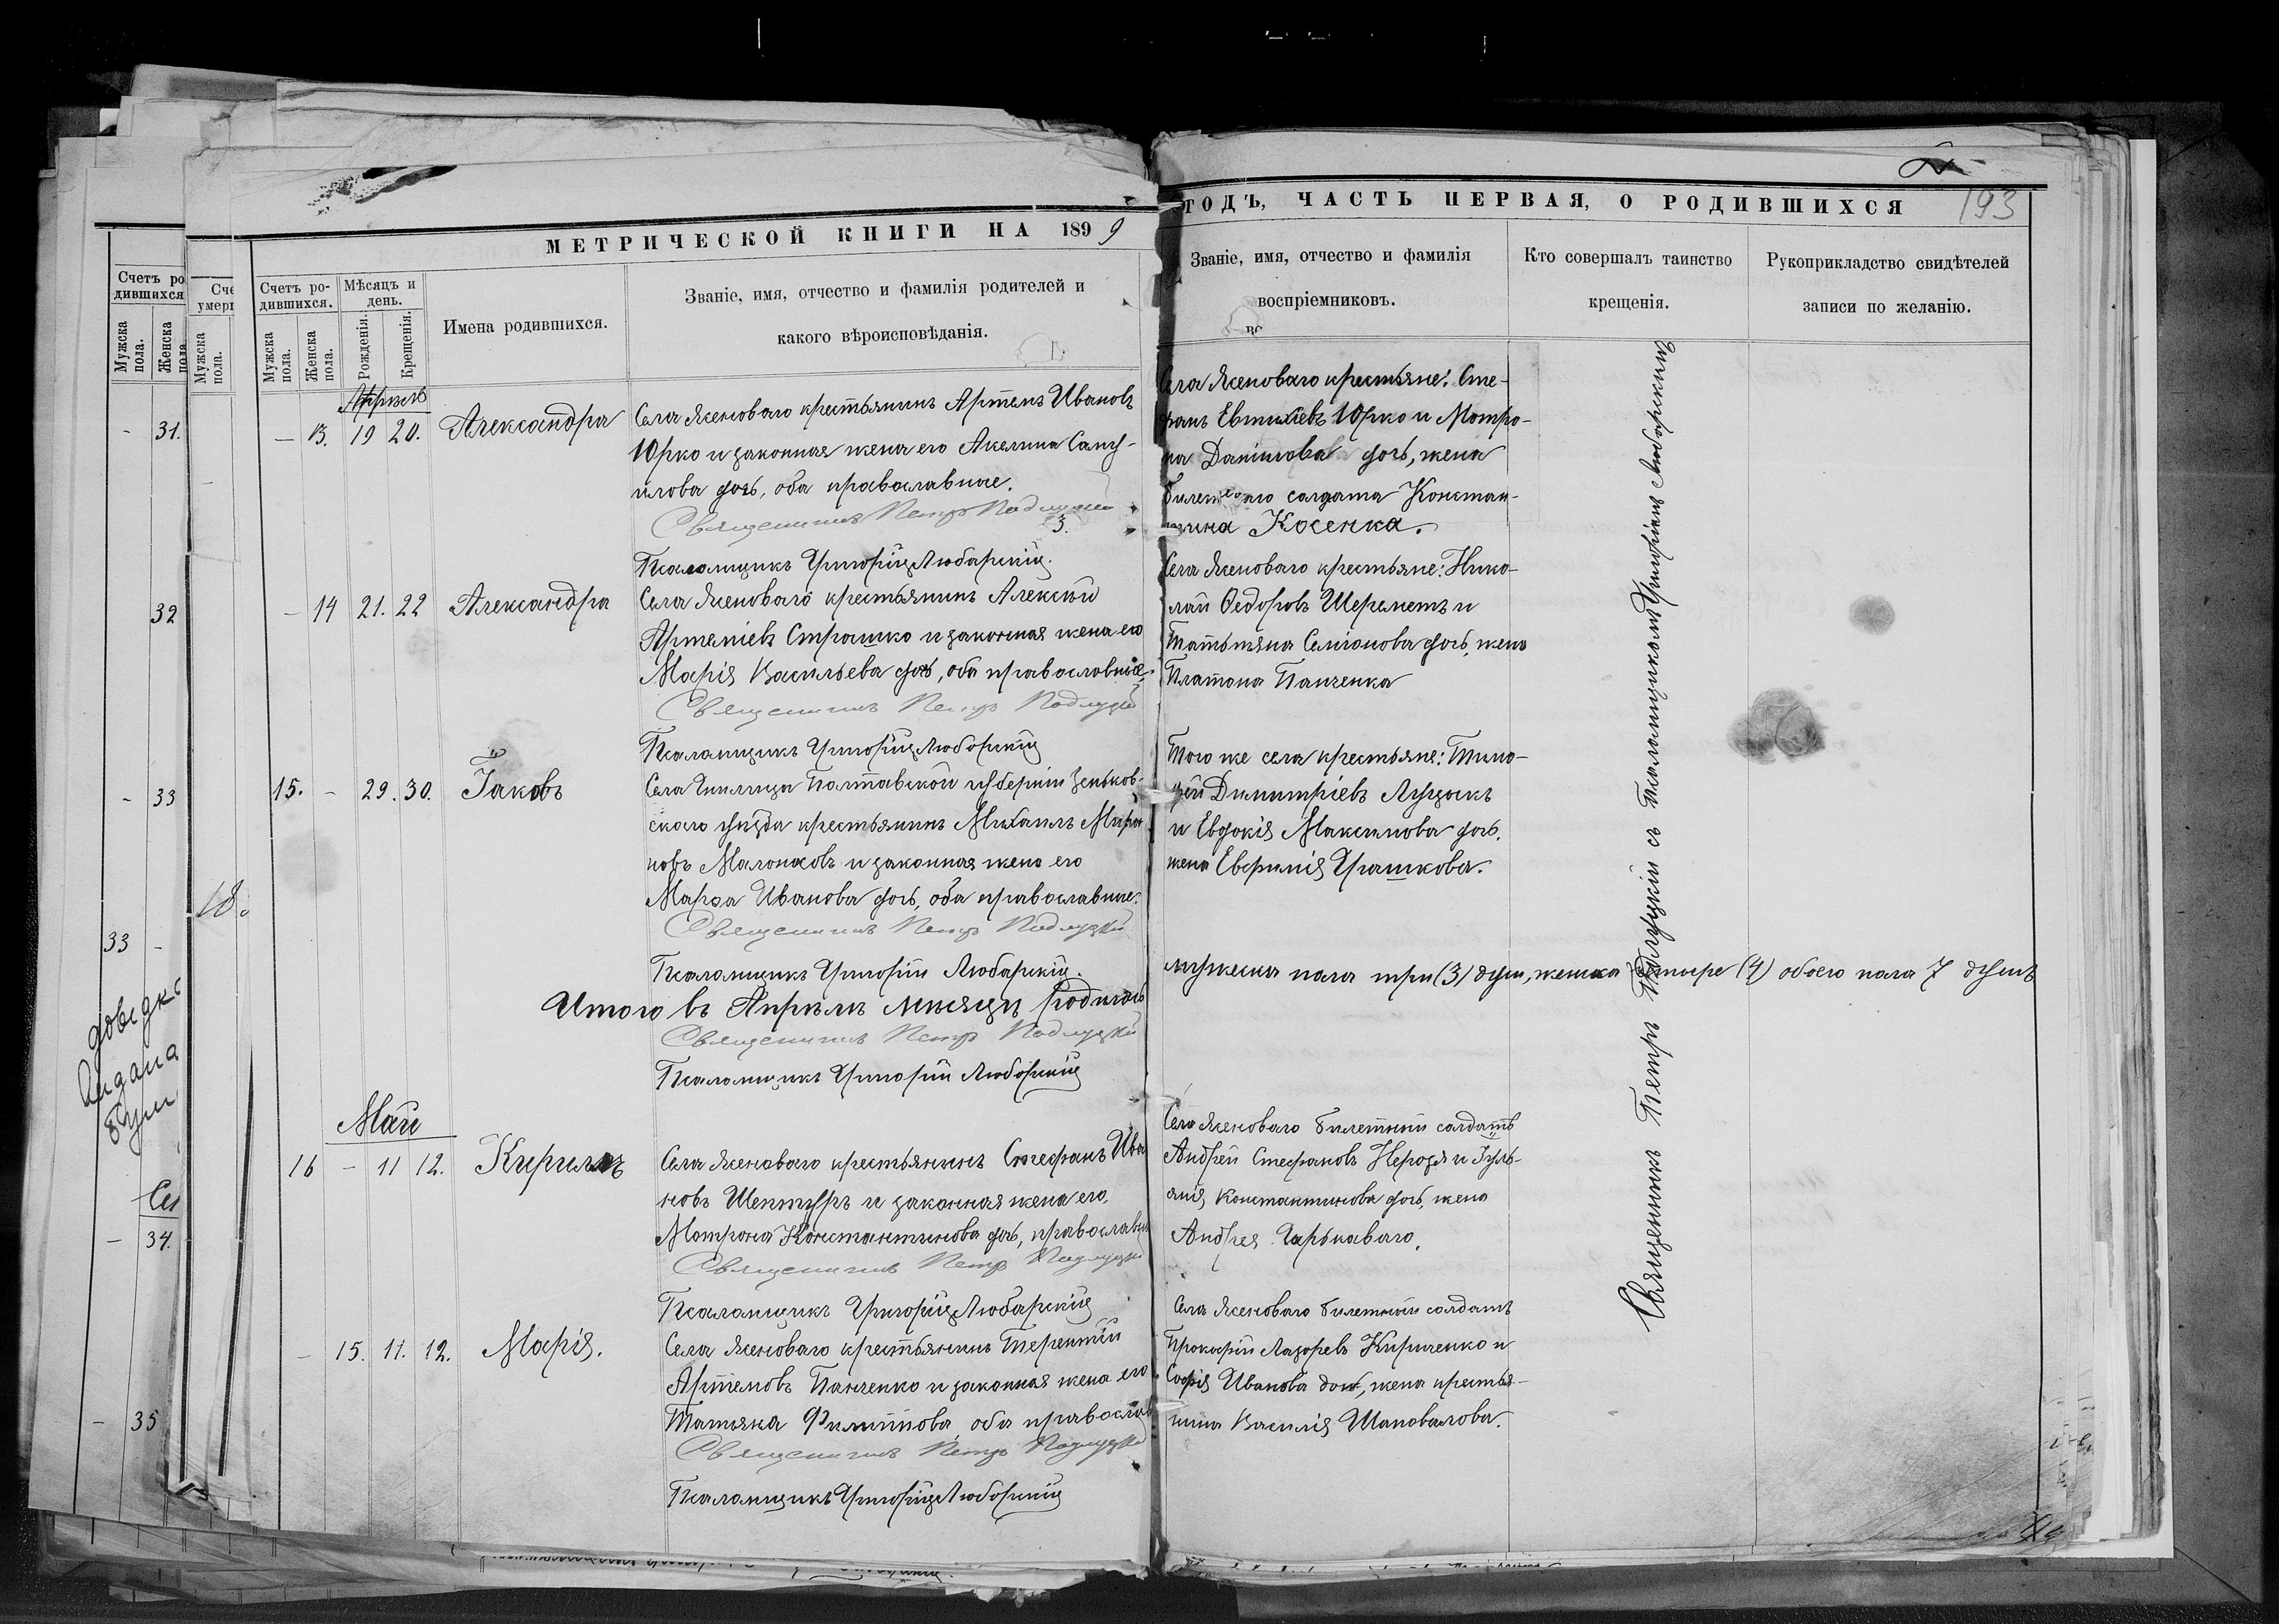 МЕТРИЧЕСКОЙ КНИГИ НА 1899
ГОДЪ, ЧАСТЬ ПЕРВАЯ, О РОДИВШИХСЯ
193
Счетъ ро
дившихся
Мужска
пола.
Женска
пола
31.
32
33
33
34.
35
Сче
умерш
Мужска
пола.
18.
Счетъ ро-
дившихся.
Мужска
пола.
Женска
пола.
Мѣсяцъ и
день.
Рожденія.
Крещенія.
Имена родившихся.
Званіе, имя, отчество и фамилія родителей и
какого вѣроисповѣданія.
Званіе, имя, отчество и фамилія
воспріемниковъ.
Кто совершалъ таинство
крещенія.
Рукоприкладство свидѣтелей
записи по желанію.
Апрель
– 13. 19 20. Александра
Села Ясеноваго крестьянинъ Артемъ Ивановъ
Юрко и законная жена его Акелина Саму-
илова дочь, оба православные.
Священникъ Петръ Подлуцкій
Псаломщикъ Григорій Любарскій.
Села Ясеноваго крестьяне: Сте-
фанъ Евтихіевъ Юрко и Матро-
на Даніилова дочь, жена
билетнаго солдата Констан-
тина Косенка.
– 14 21. 22 Александра
Села Ясеноваго крестьянинъ Алексѣй
Артеміевъ Страшко и законная жена его
Марія Васильева дочь, оба православные,
Священникъ Петръ Подлуцкій
Псаломщикъ Григорій Любарскій
Села Ясеноваго крестьяне: Нико-
лай Ѳедоровъ Шереметъ и
Татьяна Семіонова дочь, жена
Платона Панченка
15. – 29. 30. Іаковъ
Села Полтавской губерніи Зеньков-
скаго уѣзда крестьянинъ Михаилъ Миро
новъ и законная жена его
Марѳа Иванова дочь, оба православные.
Священникъ Петръ Подлуцкій
Псаломщикъ Григорій Любарскій.
Того же села крестьяне: Тимо-
фей Димитріевъ Луцыкъ
и Евдокія Максимова дочь,
жена Евфимія Грашкова.
Итого въ Апрѣлѣ мѣсяцѣ родилось
мужеска пола три (3) душ, женска четыре (4) обоего пола 7 душъ
Священникъ Петръ Подлуцкій
Псаломщикъ Григорій Любарскій
Май
16 – 11 12. Кириллъ
Села Ясеноваго крестьянинъ Стефанъ Ива
новъ Шептуръ и законная жена его,
Матрона Константинова дочь, православн
Священникъ Петръ Подлуцкій
Псаломщикъ Григорій Любарскій
Села Ясеноваго билетный солдатъ
Андрей Стефановъ Нерода и Іуль-
янія Константинова дочь, жена
Андрея Гарькаваго,
– 15. 11. 12. Марія.
Села Ясеноваго крестьянинъ Терентій
Артемовъ Панченко и законная жена его
Татьяна Филиппова, оба православ
Священникъ Петръ Подлуцкій
Псаломщикъ Григорій Любарскій
Села Ясеноваго билетный солдатъ
Прокофій Лазоревъ Кириченко и
Софія Иванова дочь, жена крестья-
нина Василія Шаповалова.
Священникъ Петръ Подлуцкій съ псаломщикомъ Григоріемъ Любарскимъ